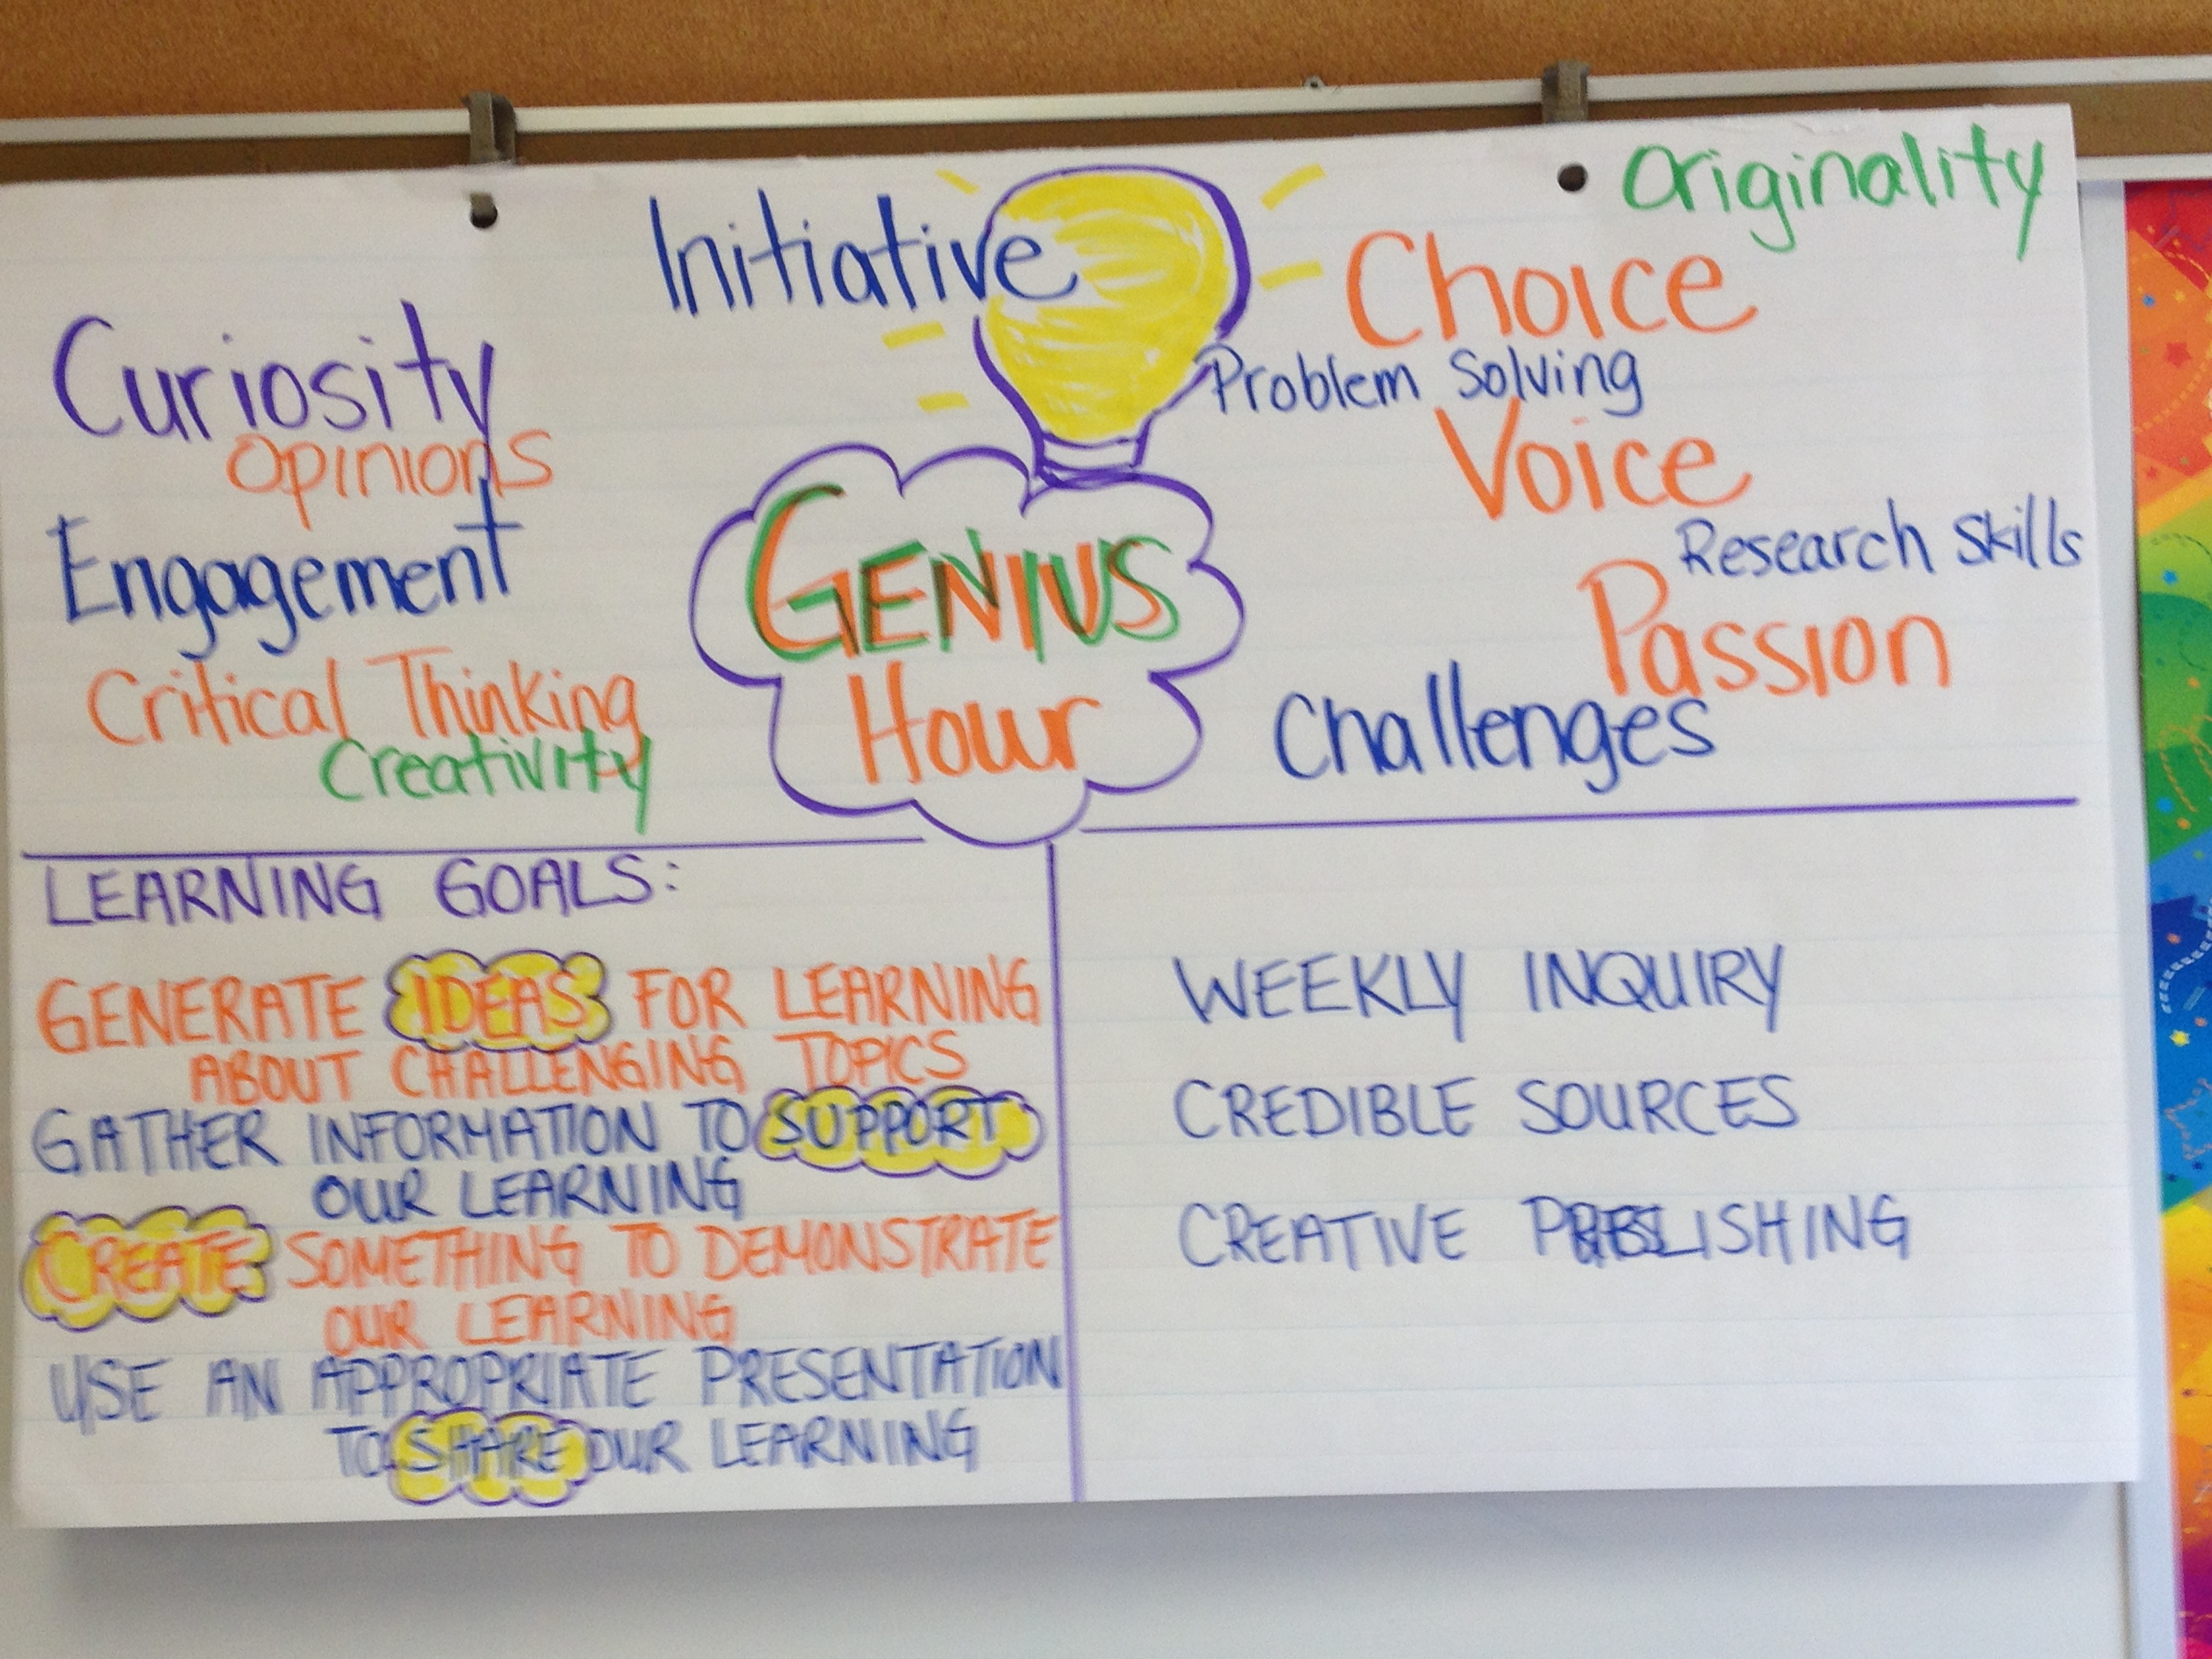 Originality
Initiative
Choice
Curiosity
Problem Solving
Opinions
Voice
Engagement
Research Skills
GENIUS
Hour
Passion
Critical Thinking
Challenges
Creativity
LEARNING GOALS:
GENERATE IDEAS FOR LEARNING
ABOUT CHALLENGING TOPICS
GATHER INFORMATION TO SUPPORT
OUR LEARNING
CREATE SOMETHING TO DEMONSTRATE
OUR LEARNING
USE AN APPROPRIATE PRESENTATION
TO SHARE OUR LEARNING
WEEKLY INQUIRY
CREDIBLE SOURCES
CREATIVE PUBLISHING